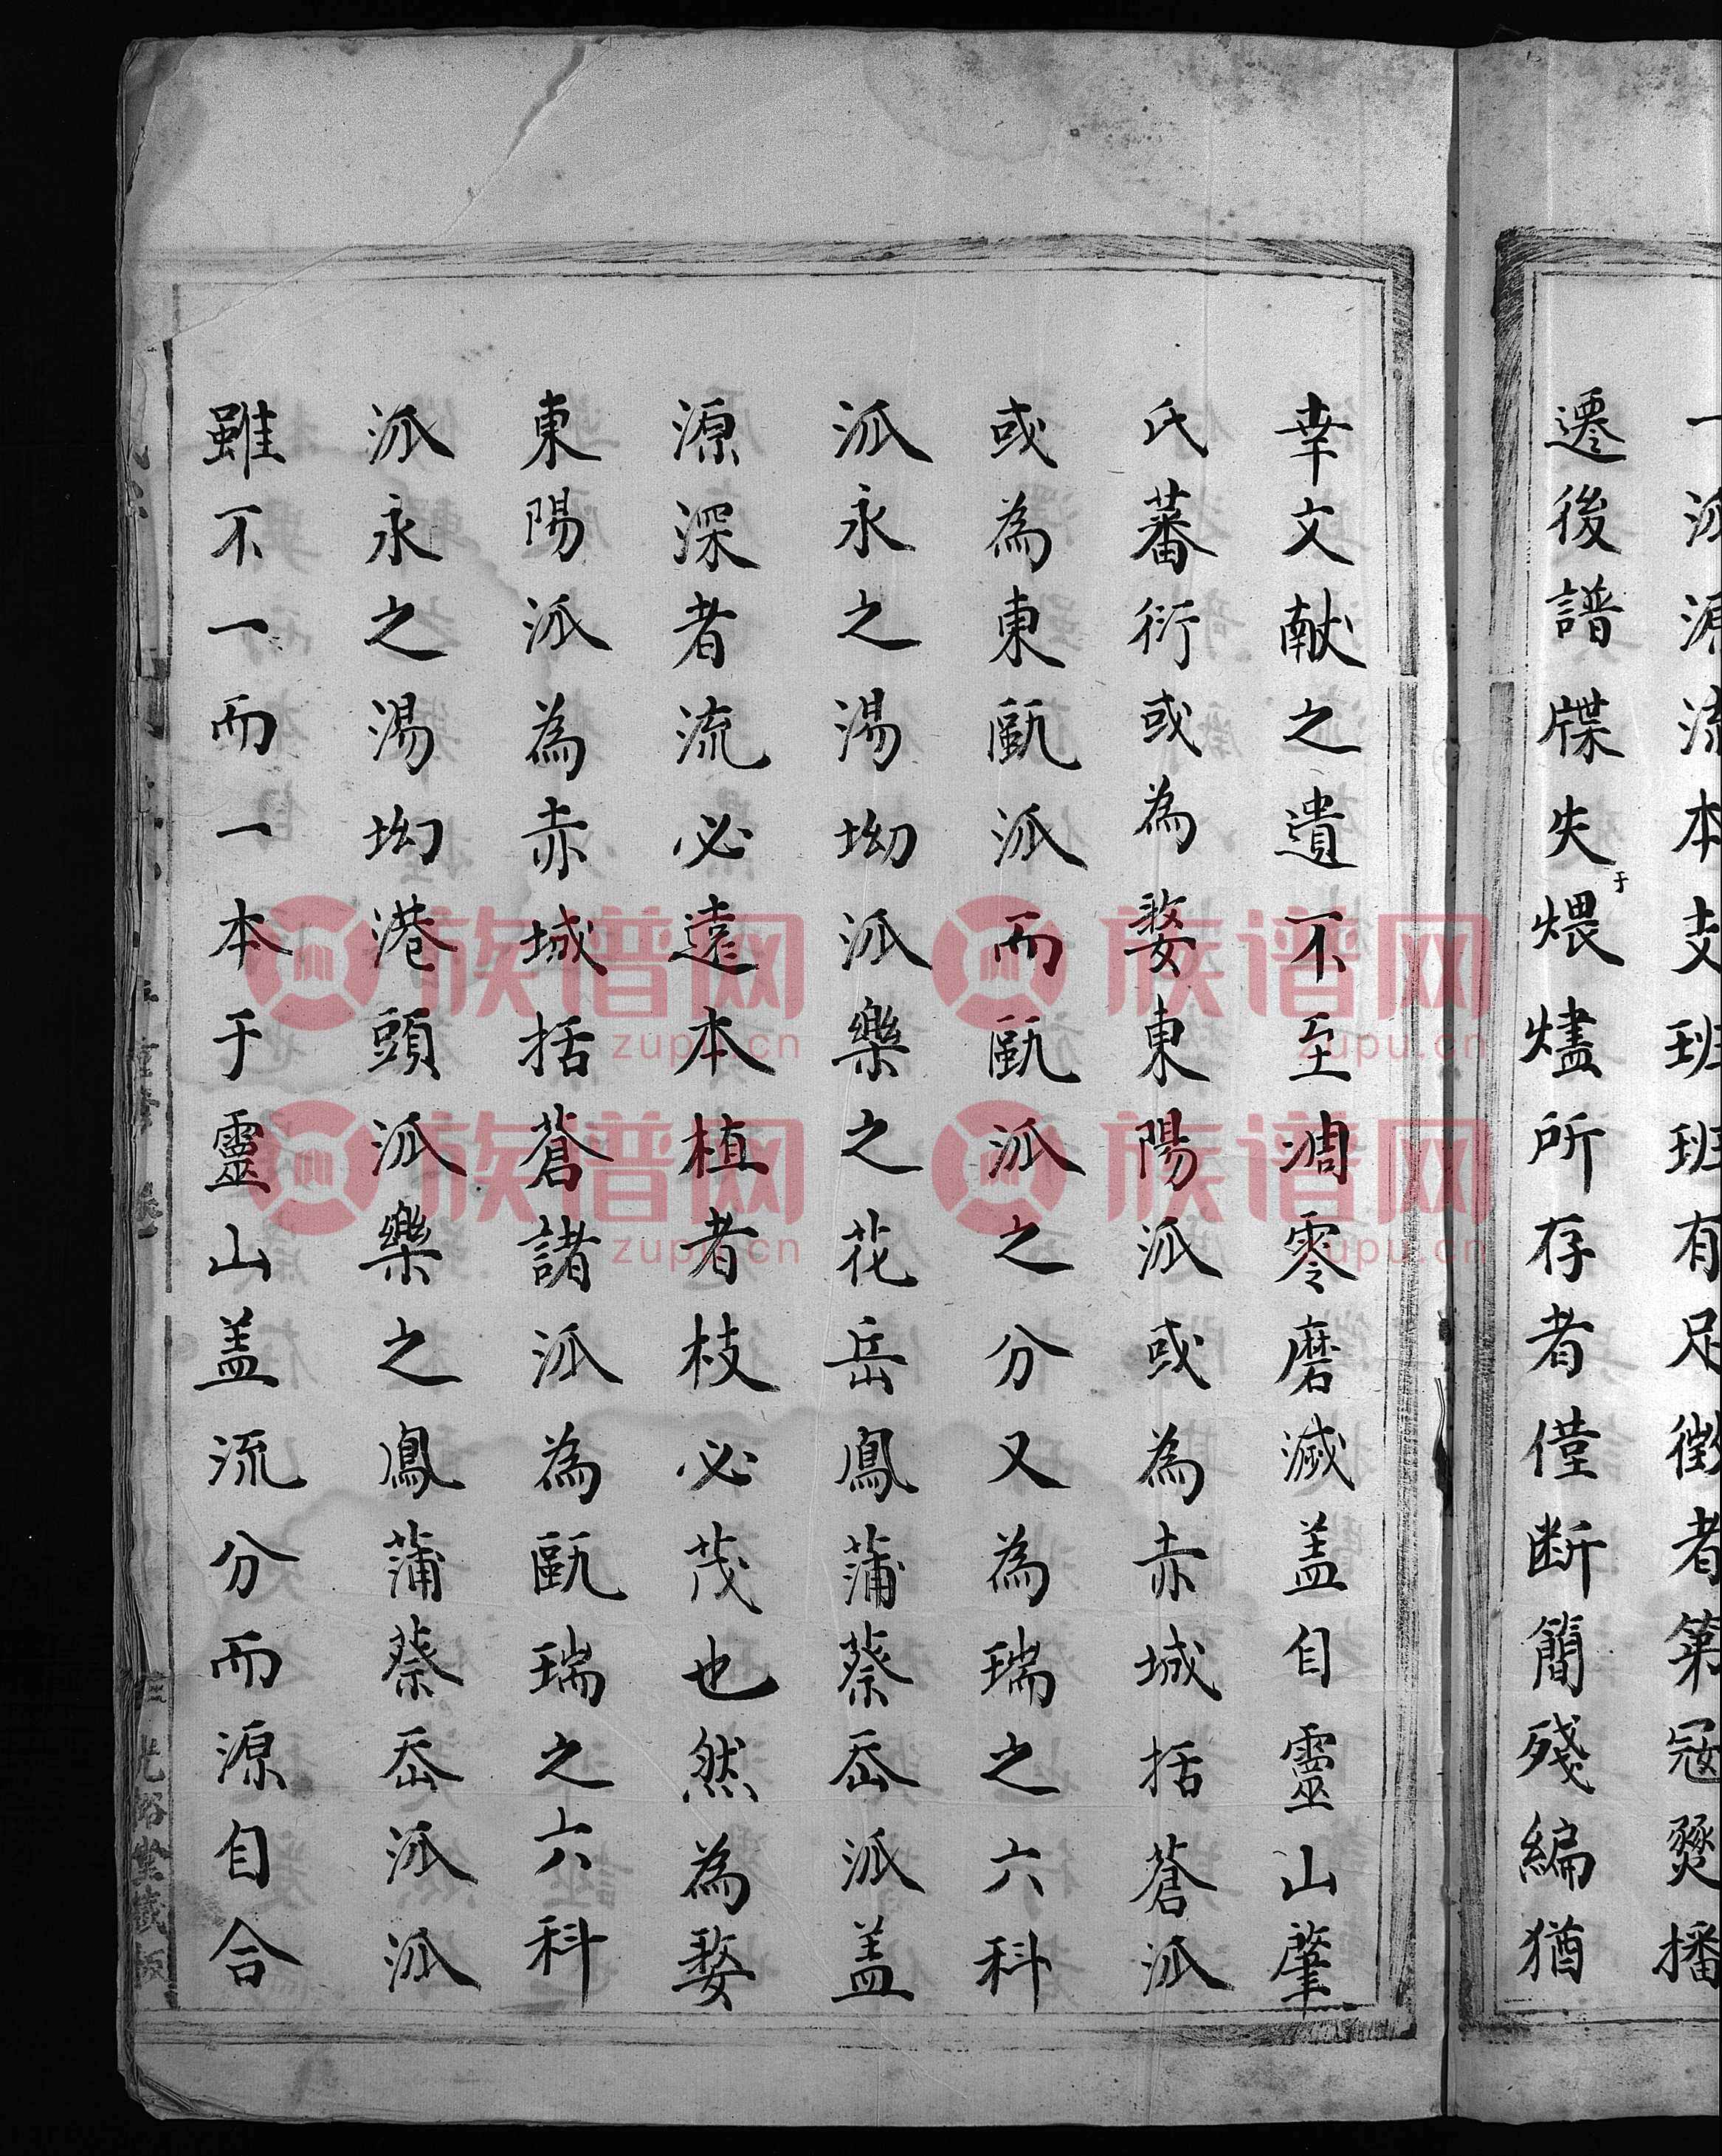 一派源流本支班班有足徵者第冦燹播
遷後譜牒失于煨燼所存者僅断簡殘編猶
幸文献之遺不至凋零磨滅盖自靈山肇
氏蕃衍或為婺東陽派或為赤城括蒼派
或為東甌派而甌派之分又為瑞之六科
派永之湯坳派樂之花岳鳳蒲蔡岙派盖
源深者流必遠本植者枝必茂也然為婺
東陽派為赤城括蒼諸派為甌瑞之六科
派永之湯坳港頭派樂之鳳蒲蔡岙派派
雖不一而一本于靈山盖流分而源自合
光裕堂藏板
族谱网
zupu.cn
族谱网
zupu.cn
族谱网
zupu.cn
族谱网
zupu.cn